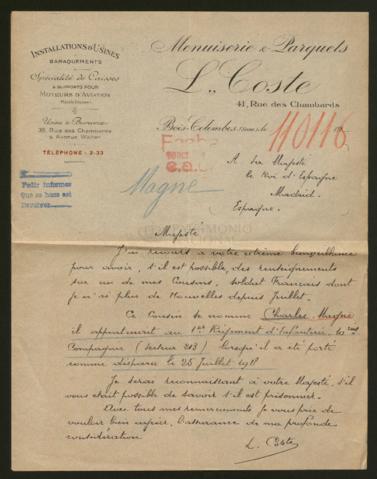 INSTALLATIONS D'USINES
BARAQUEMENTS
Spécialité de Caisses
& SUPPORTS POUR
MOTEURS D'AVIATION
Usine & Bureaux
TÉLÉPHONE: 2-33
Menuiserie & Parquets
L. Coste
41, Rue des Chambards
Bois-Colombes, (Seine) le
110116
Magné
Petir informes
A Sa Majesté
le Roi d'Espagne
Madrid
Espagne
Majesté
J'ai recours à votre extrême bienveillance
pour avoir, s'il est possible, des renseignements
sur un de mes Cousins, soldat Français dont
je n'ai plus de Nouvelles depuis Juillet.
Ce Cousin se nomme Charles Magné
il appartenait au 1er Régiment d'Infanterie 10eme
Compagnie (Secteur 213) lorsqu'il a été porté
comme disparu le 25 Juillet 1918
Je serai reconnaissant à votre Majesté, s'il
vous était possible de savoir s'il est prisonnier.
Avec tous mes remerciements je vous prie de
vouloir bien agréer, l'assurance de ma profonde
considération
L. Coste